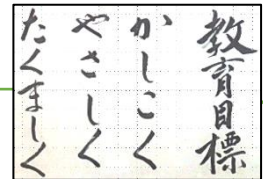 教育目標
かしこく
やさしく
たくましく